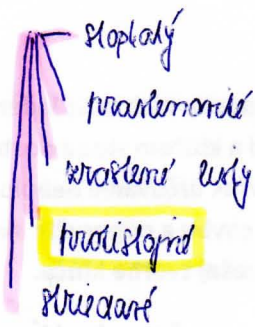 stopkatý
praslenovité
zrastené listy
protistojné
striedavé